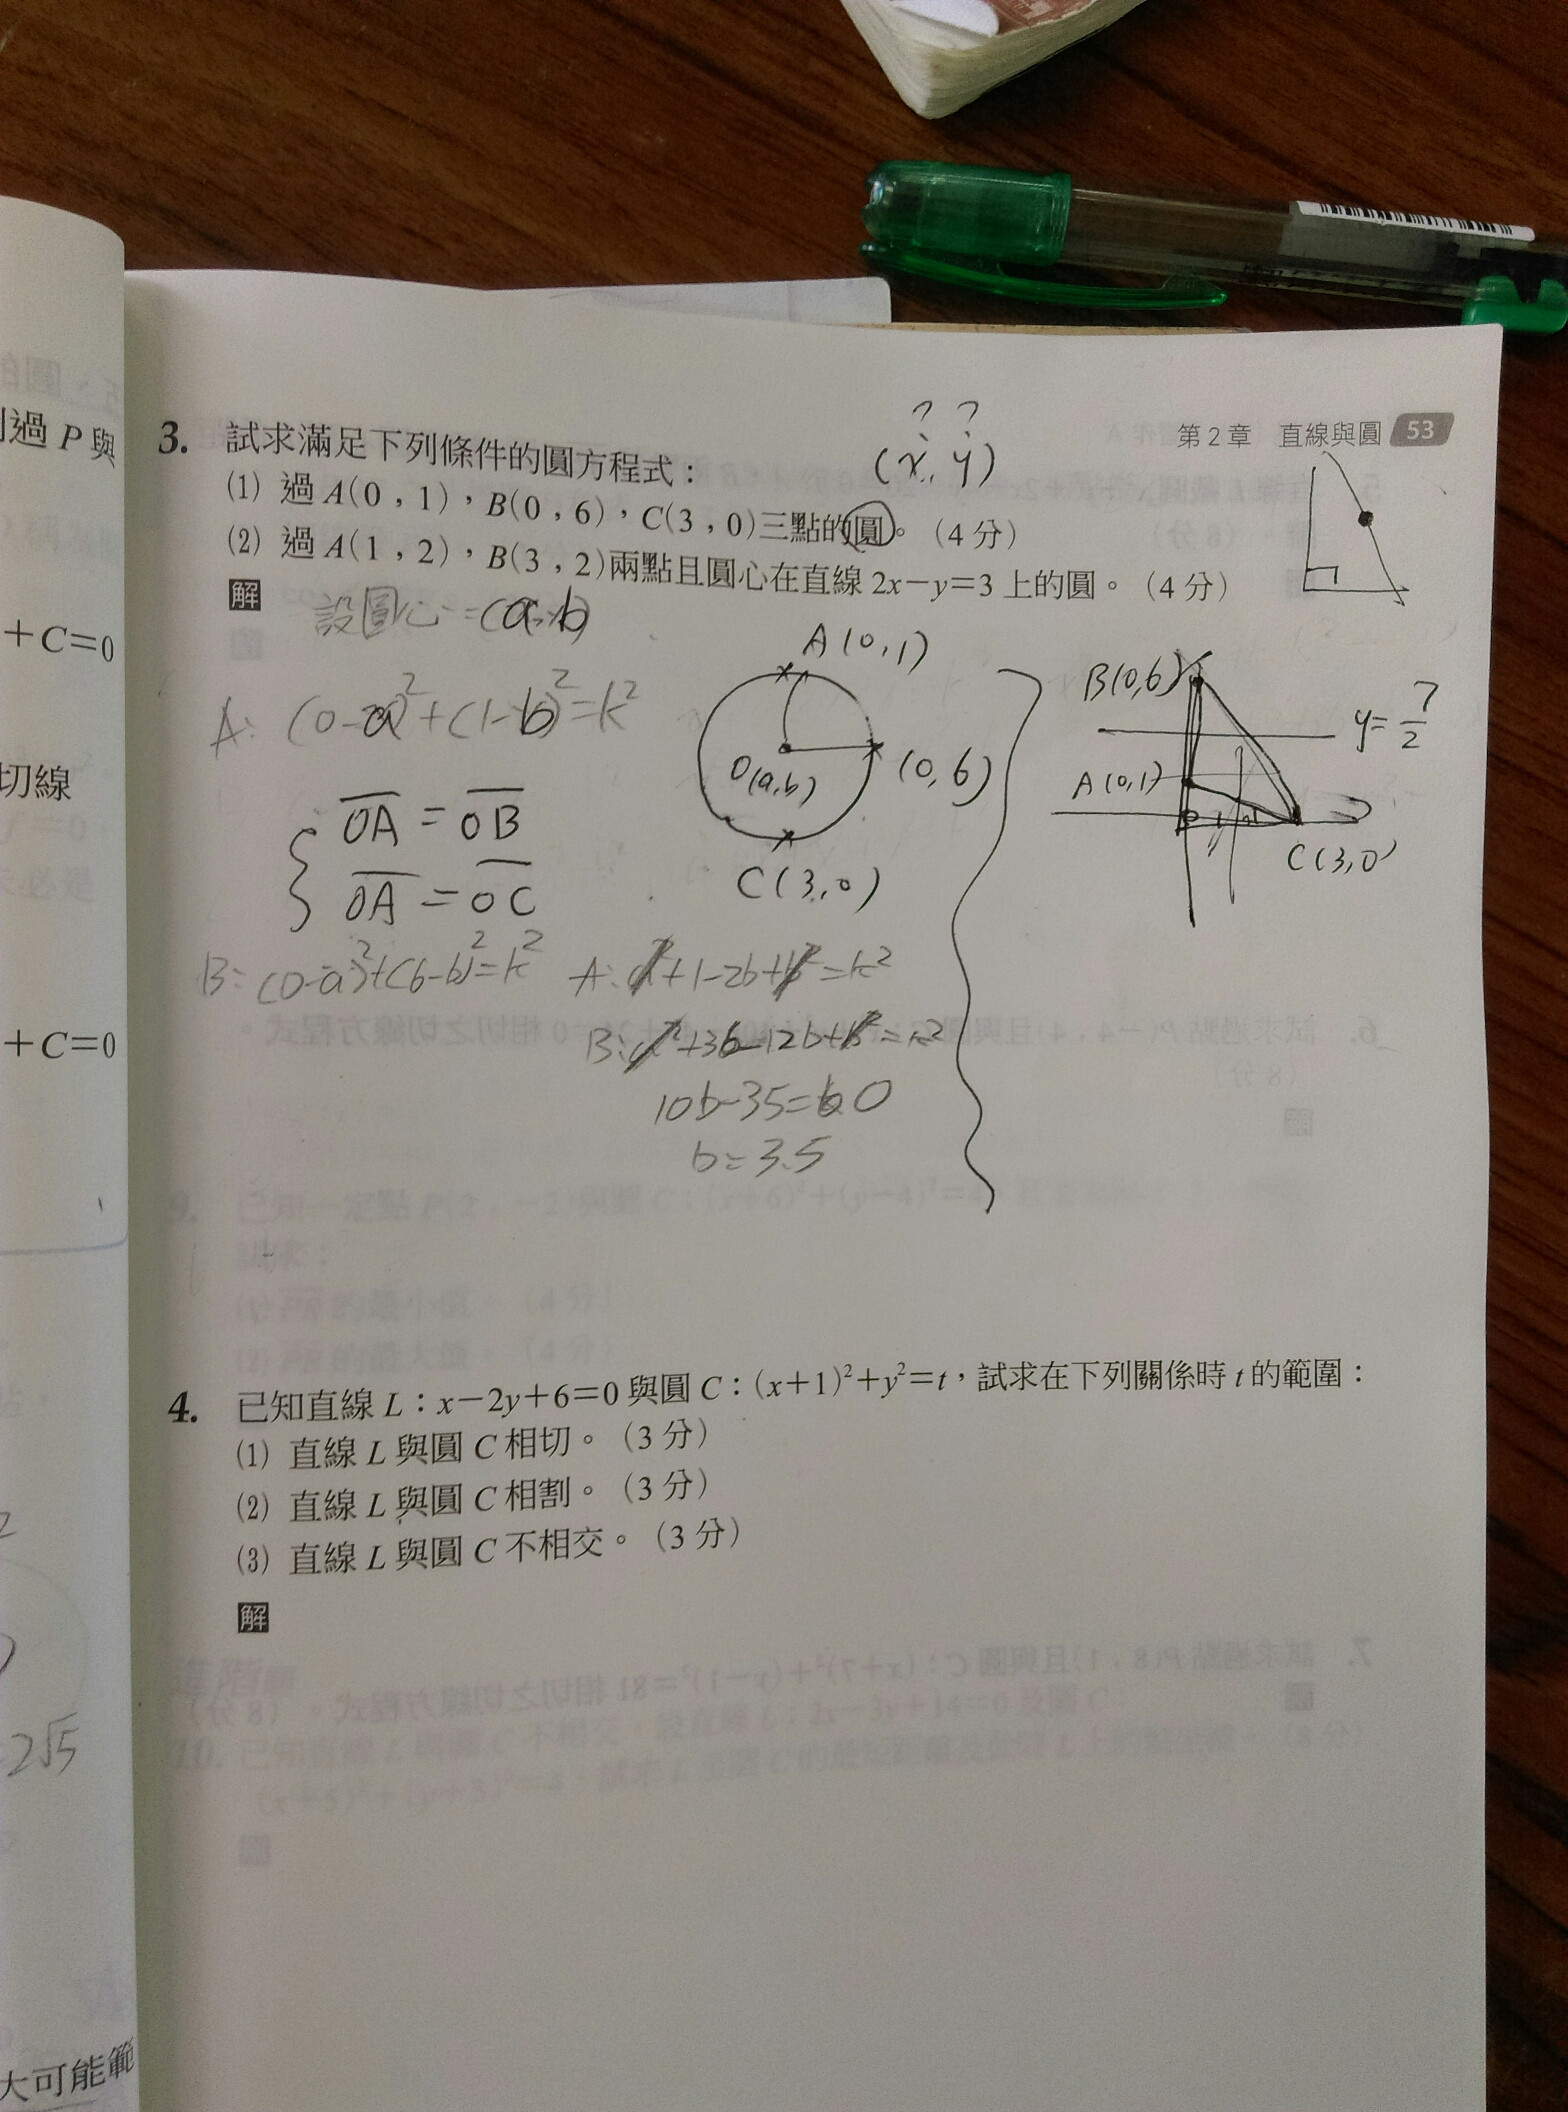 第2章 直線與圓 53
過 P 與
+C=0
切線
+C=0
2√5
大可能範
3. 試求滿足下列條件的圓方程式：
(x, y)
? ?
(1) 過 A(0，1)，B(0，6)，C(3，0)三點的圓。（4分）
(2) 過 A(1，2)，B(3，2)兩點且圓心在直線 2x−y=3 上的圓。（4分）
解 設圓心=(a,b)
A: (0-a)²+(1-b)²=k²
A(0,1)
O(a,b)
(0,6)
C(3,0)
B(0,6)
y=7/2
A(0,1)
C(3,0)
OA = OB
OA = OC
B: (0-a)²+(6-b)²=k²
A: a²+1-2b+b²=k²
B: a²+36-12b+b²=k²
10b-35=0
b=3.5
4. 已知直線 L：x−2y+6=0 與圓 C：(x+1)²+y²=t，試求在下列關係時 t 的範圍：
(1) 直線 L 與圓 C 相切。（3分）
(2) 直線 L 與圓 C 相割。（3分）
(3) 直線 L 與圓 C 不相交。（3分）
解